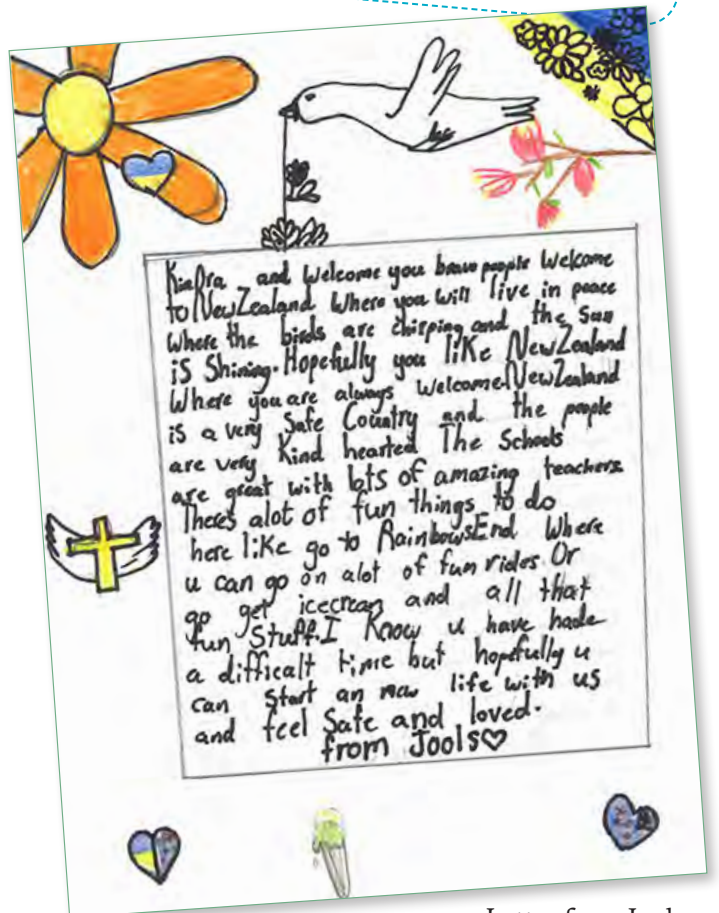 KiaOra and Welcome you brave people Welcome
to NewZealand Where you will live in peace
Where the birds are chirping and the Sun
iS Shining. Hopefully you liKe NewZealand
Where you are always Welcome. NewZealand
is a very Safe Country and the people
are very Kind hearted The Schools
are great with lots of amazing teachers
There's alot of fun things to do
here liKe go to RainbowsEnd Where
u can go on alot of fun rides. Or
go get icecream and all that
fun Stuff. I Know u have hade
a difficalt time but hopefully u
can Start an new life with us
and feel Safe and loved.
from Jools♡